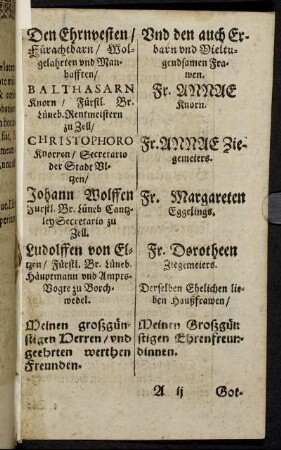 Den Ehrnvesten/
Fürachtbarn/ Wol-
gelahrten vnd Man-
hafften/
BALTHASARN
Knorn/ Fürstl. Br.
Lüneb. Rentmeistern
zu Zell/
CHRISTOPHORO
Knorren/ Secretario
der Stadt Vl-
tzen/
Johann Wolffen
Furstl. Br. Lüneb Cantz-
ley Secretario zu
Zell.
Ludolffen von El-
tzen/ Fürstl. Br. Lüneb.
Häuptmann vnd Ampts-
Vogte zu Borch-
wedel.
Meinen großgün-
stigen Herren/ vnd
geehrten werthen
Freunden.
Vnd den auch Er-
barn vnd Vieltu-
gendsamen Fra-
wen.
Fr. ANNAE
Knorn.
Fr. ANNAE Zie-
gemeiers.
Fr. Margareten
Eggelings.
Fr. Dorotheen
Ziegemeiers.
Derselben Ehelichen lie-
ben Haußfrawen/
Meinen Großgün
stigen Ehrenfreun-
dinnen.
A ij Got-